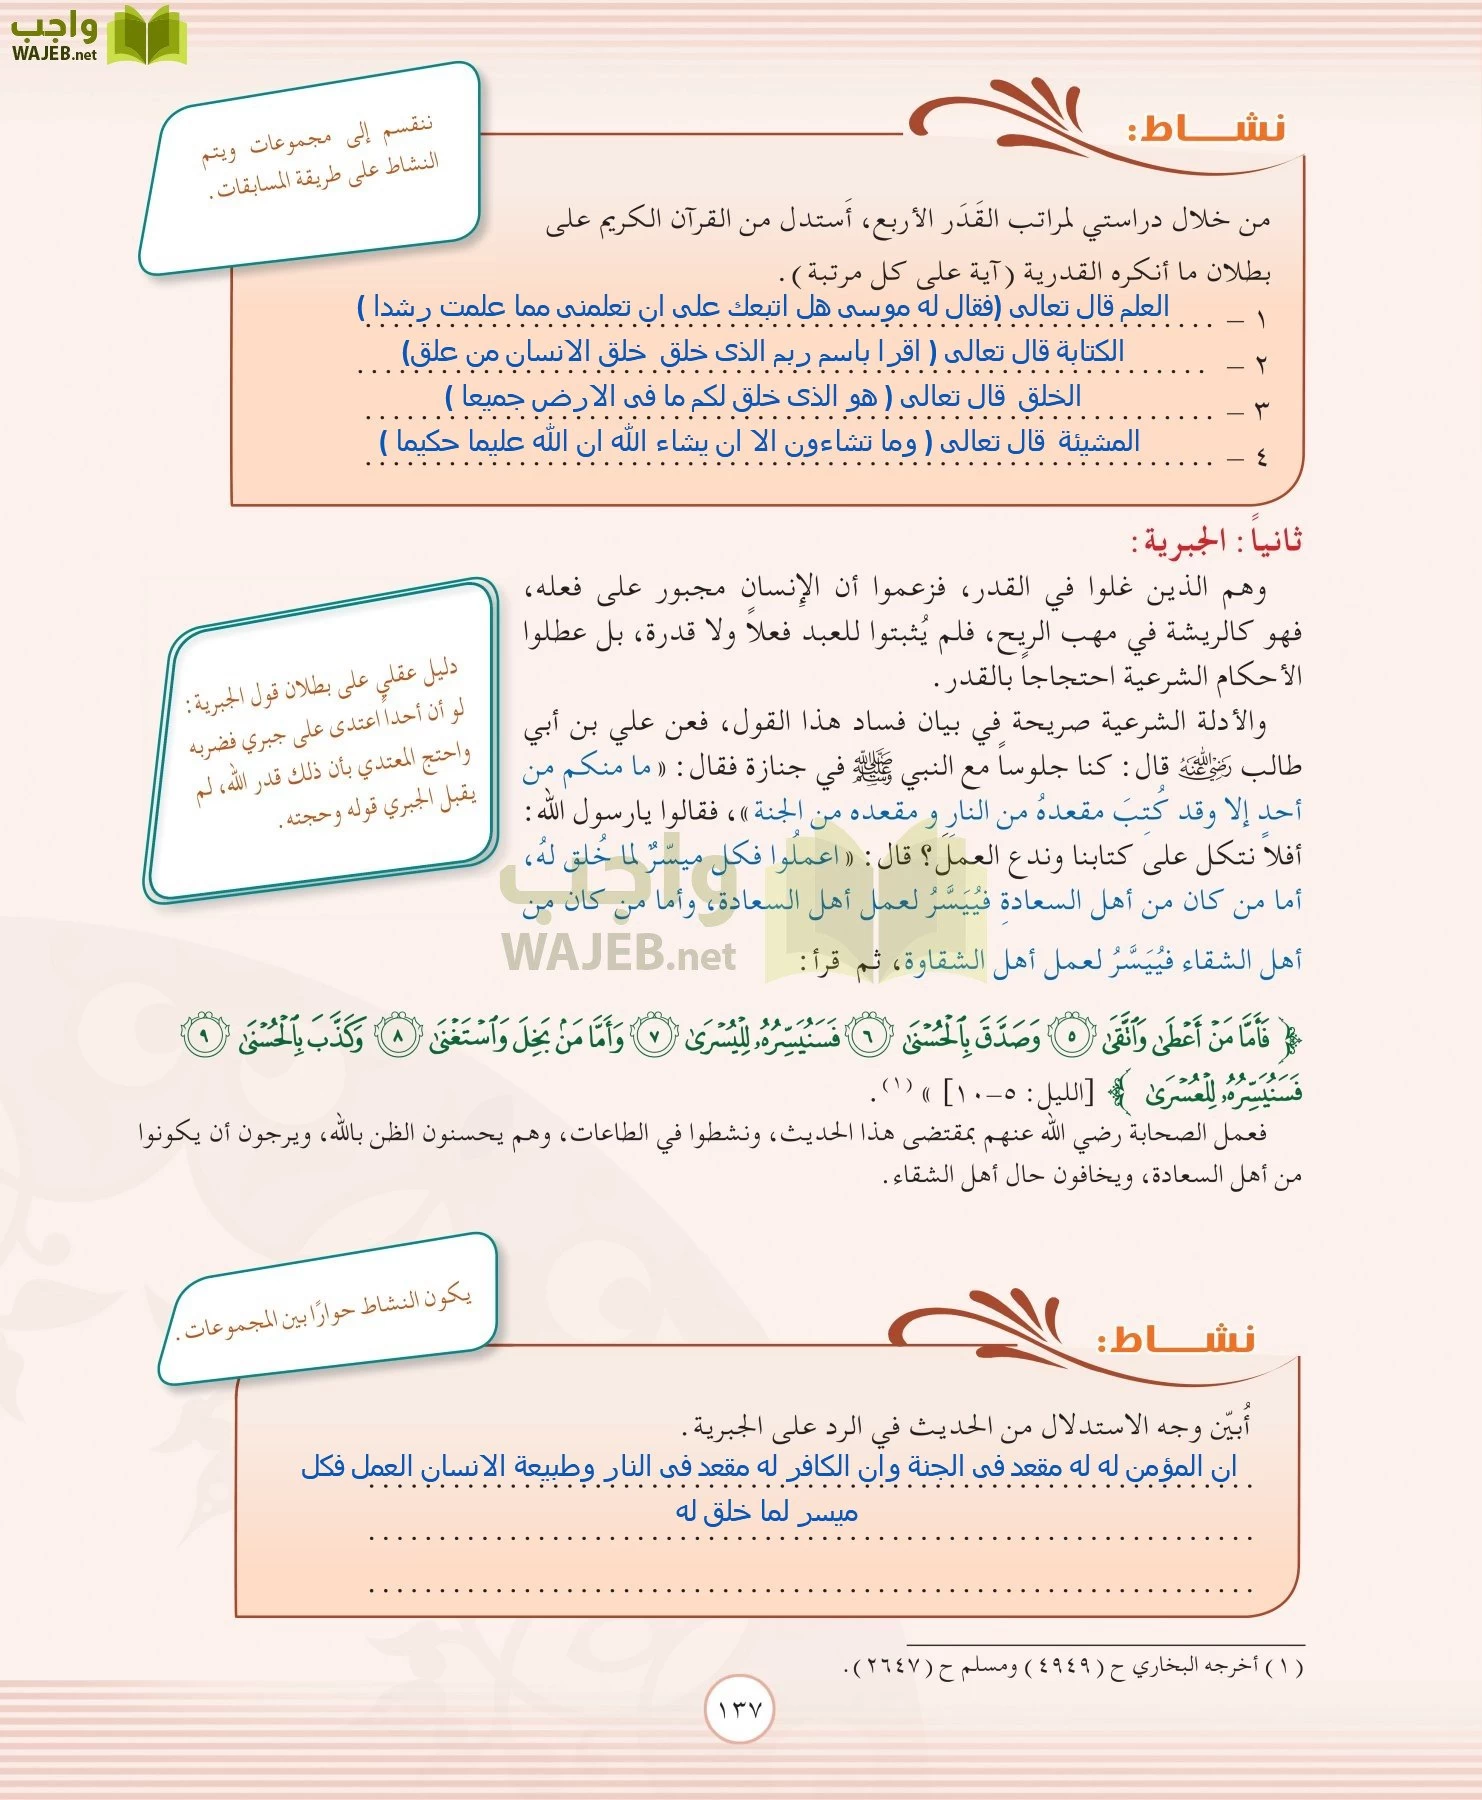 واجب
WAJEB.net
نشـــاط:
ننقسم إلى مجموعات ويتم
النشاط على طريقة المسابقات.
من خلال دراستي لمراتب القَدَر الأربع، أَستدل من القرآن الكريم على
بطلان ما أنكره القدرية (آية على كل مرتبة).
١ – العلم قال تعالى (فقال له موسى هل اتبعك على ان تعلمنى مما علمت رشدا )
٢ – الكتابة قال تعالى ( اقرا باسم ربم الذى خلق خلق الانسان من علق)
٣ – الخلق قال تعالى ( هو الذى خلق لكم ما فى الارض جميعا )
٤ – المشيئة قال تعالى ( وما تشاءون الا ان يشاء الله ان الله عليما حكيما )
ثانياً: الجبرية:
وهم الذين غلوا في القدر، فزعموا أن الإنسان مجبور على فعله،
فهو كالريشة في مهب الريح، فلم يُثبتوا للعبد فعلاً ولا قدرة، بل عطلوا
الأحكام الشرعية احتجاجاً بالقدر.
دليل عقلي على بطلان قول الجبرية:
لو أن أحداً اعتدى على جبري فضربه
واحتج المعتدي بأن ذلك قدر الله، لم
يقبل الجبري قوله وحجته.
والأدلة الشرعية صريحة في بيان فساد هذا القول، فعن علي بن أبي
طالب رضي الله عنه قال: كنا جلوساً مع النبي ﷺ في جنازة فقال: « ما منكم من
أحد إلا وقد كُتِبَ مقعدهُ من النار و مقعده من الجنة »، فقالوا يارسول الله:
أفلا نتكل على كتابنا وندع العمَلَ؟ قال: « اعملُوا فكل ميسّرٌ لما خُلق لهُ،
أما من كان من أهل السعادةِ فيُيَسَّرُ لعمل أهل السعادة، وأما من كان من
أهل الشقاء فيُيَسَّرُ لعمل أهل الشقاوة، ثم قرأ:
واجب
WAJEB.net
﴿ فَأَمَّا مَنْ أَعْطَىٰ وَاتَّقَىٰ ٥ وَصَدَّقَ بِالْحُسْنَىٰ ٦ فَسَنُيَسِّرُهُ لِلْيُسْرَىٰ ٧ وَأَمَّا مَنْ بَخِلَ وَاسْتَغْنَىٰ ٨ وَكَذَّبَ بِالْحُسْنَىٰ ٩
فَسَنُيَسِّرُهُ لِلْعُسْرَىٰ ﴾ [الليل: ٥-١٠] » (١).
فعمل الصحابة رضي الله عنهم بمقتضى هذا الحديث، ونشطوا في الطاعات، وهم يحسنون الظن بالله، ويرجون أن يكونوا
من أهل السعادة، ويخافون حال أهل الشقاء.
يكون النشاط حوارًا بين المجموعات.
نشـــاط:
أُبيّن وجه الاستدلال من الحديث في الرد على الجبرية.
ان المؤمن له له مقعد فى الجنة وان الكافر له مقعد فى النار وطبيعة الانسان العمل فكل
ميسر لما خلق له
(١) أخرجه البخاري ح (٤٩٤٩) ومسلم ح (٢٦٤٧).
١٣٧